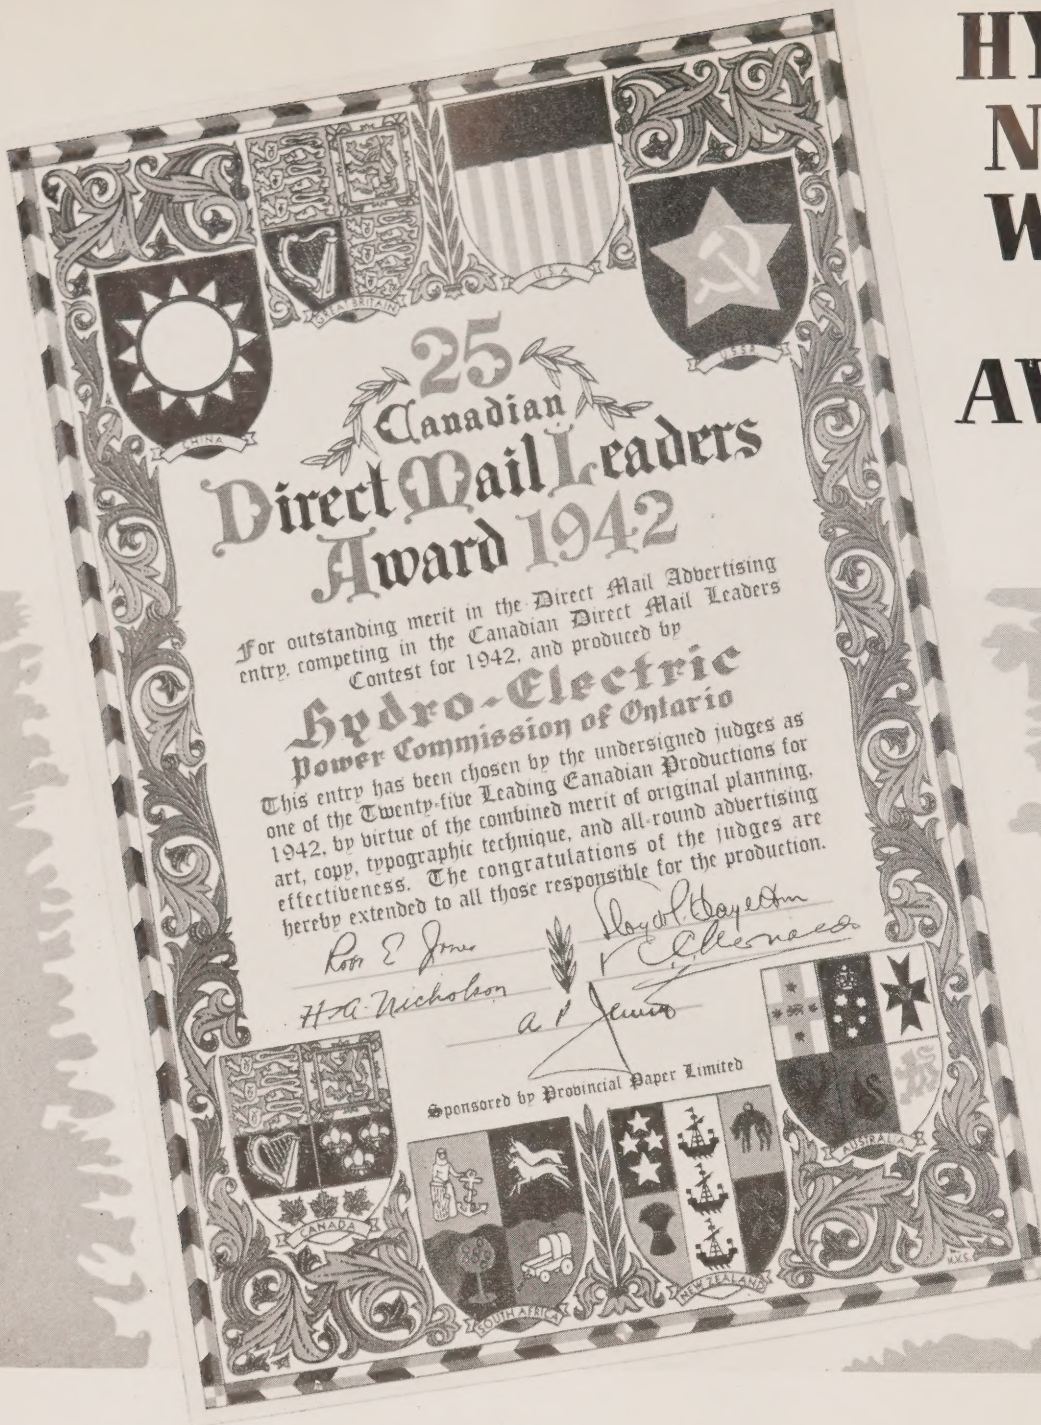 HY
N
W
AW
GREAT BRITAIN
U.S.A
CHINA
USSR
25
Canadian
Direct Mail Leaders
Award 1942
For outstanding merit in the Direct Mail Advertising
entry, competing in the Canadian Direct Mail Leaders
Contest for 1942, and produced by
Hydro-Electric
Power Commission of Ontario
This entry has been chosen by the undersigned judges as
one of the Twenty-five Leading Canadian Productions for
1942, by virtue of the combined merit of original planning,
art, copy, typographic technique, and all-round advertising
effectiveness. The congratulations of the judges are
hereby extended to all those responsible for the production.
E Jones
H.A. Nicholson
Sponsored by Provincial Paper Limited
AUSTRALIA
CANADA
SOUTH AFRICA
NEW ZEALAND